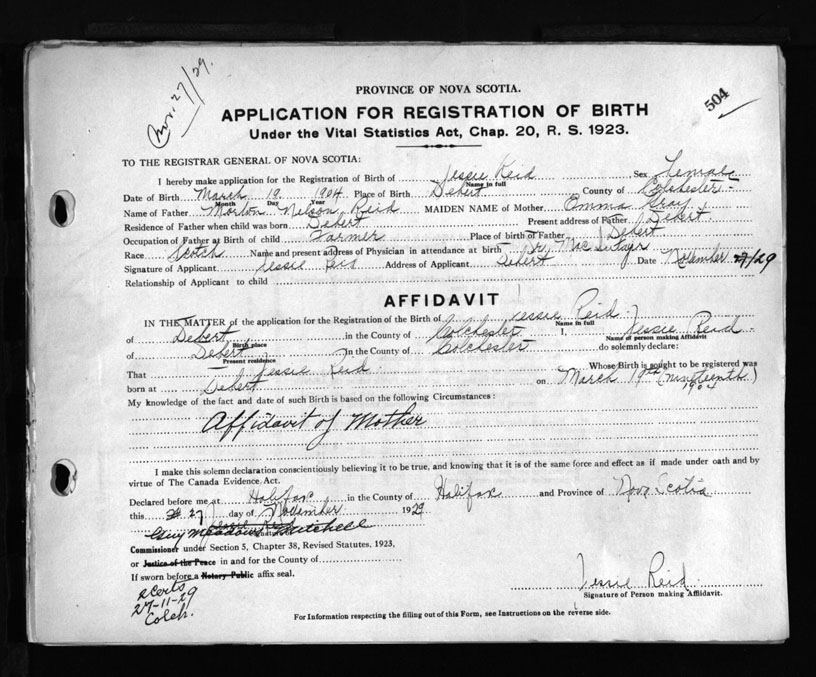 Nov. 27/29.
504
PROVINCE OF NOVA SCOTIA.
APPLICATION FOR REGISTRATION OF BIRTH
Under the Vital Statistics Act, Chap. 20, R. S. 1923.
TO THE REGISTRAR GENERAL OF NOVA SCOTIA:
I hereby make application for the Registration of Birth of Jessie Reid Sex Female
Name in full
Date of Birth March 19 1904 Place of Birth Debert County of Colchester
Month Day Year
Name of Father Morton Nelson Reid MAIDEN NAME of Mother Emma Gray
Residence of Father when child was born Debert Present address of Father Debert
Occupation of Father at Birth of child Farmer Place of birth of Father Debert
Race Scotch Name and present address of Physician in attendance at birth Dr. Mac
Signature of Applicant Jessie Reid Address of Applicant Debert Date November 27/29
Relationship of Applicant to child
AFFIDAVIT
IN THE MATTER of the application for the Registration of the Birth of Jessie Reid
Name in full
of Debert in the County of Colchester I, Jessie Reid
Birth place Name of person making Affidavit
of Debert in the County of Colchester do solemnly declare:
Present residence
That Jessie Reid Whose Birth is sought to be registered was
born at Debert on March 19th (nineteenth)
1904
My knowledge of the fact and date of such Birth is based on the following Circumstances:
Affidavit of Mother
I make this solemn declaration conscientiously believing it to be true, and knowing that it is of the same force and effect as if made under oath and by
virtue of The Canada Evidence Act.
Declared before me at Halifax in the County of Halifax and Province of Nova Scotia
this 27 day of November 1929
Mitchell
Commissioner under Section 5, Chapter 38, Revised Statutes, 1923,
or Justice of the Peace in and for the County of
If sworn before a Notary Public affix seal.
2 Certs
27-11-29
Colch.
Jessie Reid
Signature of Person making Affidavit.
For Information respecting the filling out of this Form, see Instructions on the reverse side.